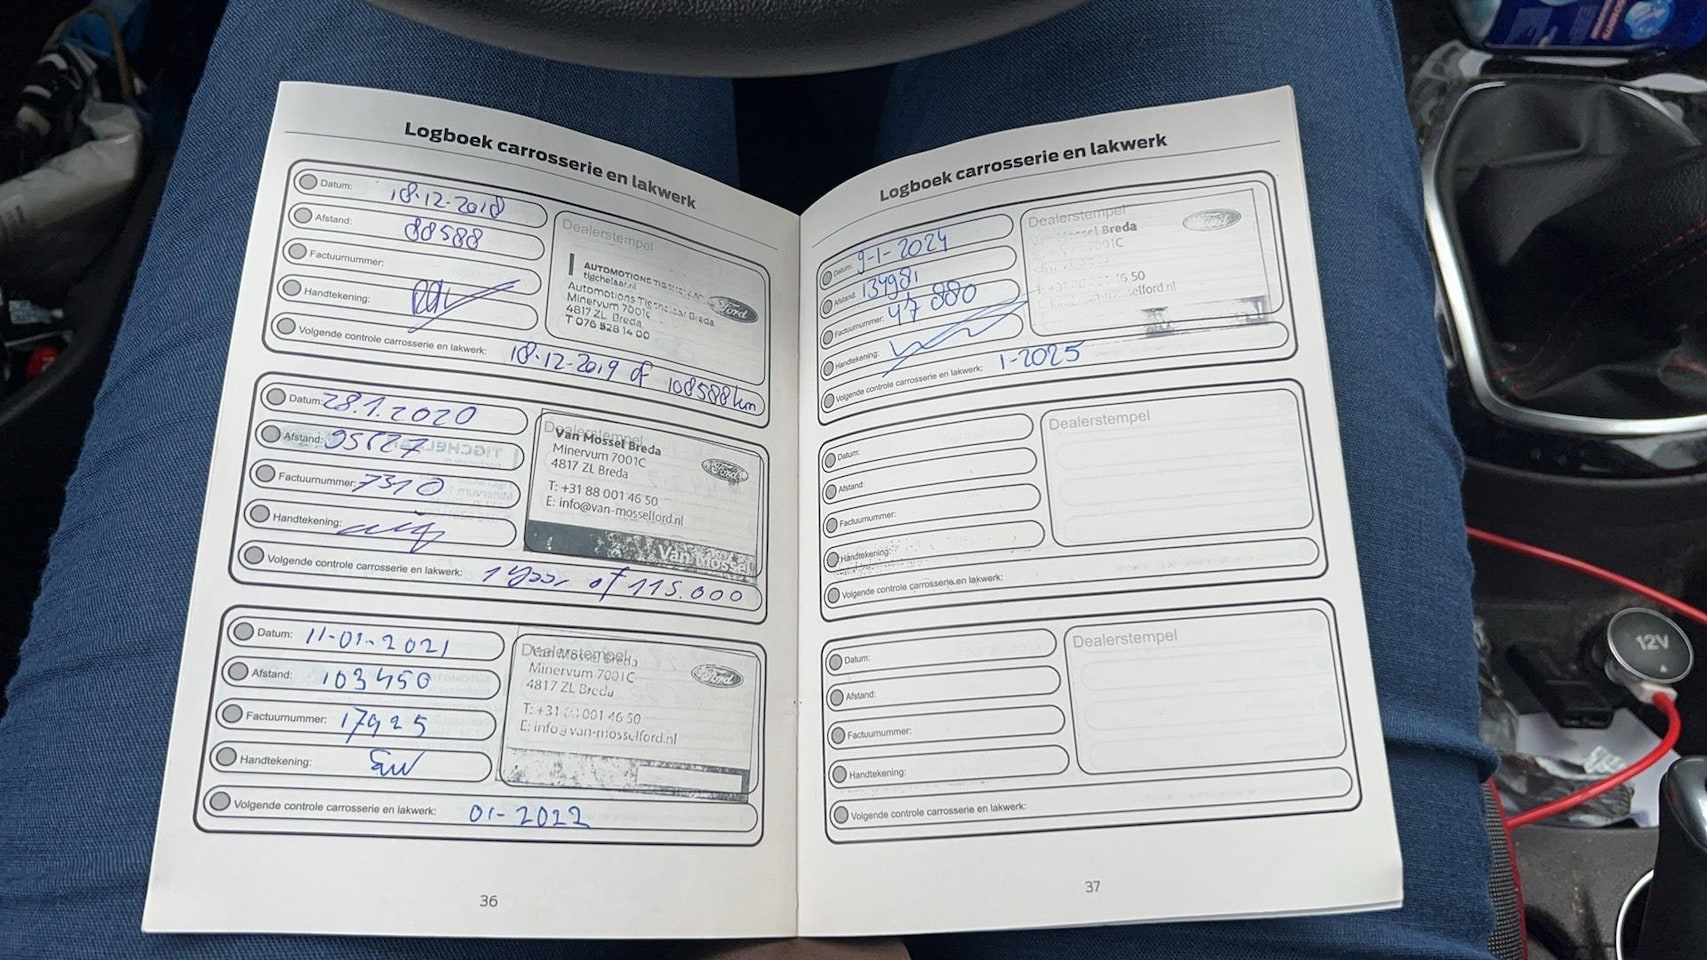 Logboek carrosserie en lakwerk
Datum: 18-12-2018
Afstand: 88588
Factuurnummer:
Handtekening:
Volgende controle carrosserie en lakwerk: 18-12-2019 of 108588 km
Dealerstempel
tigchelaar.nl
Automotions Tigchelaar Breda
Minervum 7001c
4817 ZL Breda
T 076 528 14 00
Ford
Datum: 28.1.2020
Afstand:
Factuurnummer: 7310
Handtekening:
Volgende controle carrosserie en lakwerk: 1 of 115.000
Dealerstempel
Van Mossel Breda
Minervum 7001C
4817 ZL Breda
T: +31 88 001 46 50
E: info@van-mosselford.nl
Ford
Van Mossel
Datum: 11-01-2021
Afstand: 103450
Factuurnummer: 17925
Handtekening:
Volgende controle carrosserie en lakwerk: 01-2022
Dealerstempel
Van Mossel Breda
Minervum 7001C
4817 ZL Breda
T: +31 88 001 46 50
E: info@van-mosselford.nl
Ford
36
Logboek carrosserie en lakwerk
Datum: 9-1-2024
Afstand: 134981
Factuurnummer: 47880
Handtekening:
Volgende controle carrosserie en lakwerk: 1-2025
Dealerstempel
Mossel Breda
7001C
46 50
mosselford.nl
Ford
Datum:
Afstand:
Factuurnummer:
Handtekening:
Volgende controle carrosserie en lakwerk:
Dealerstempel
Datum:
Afstand:
Factuurnummer:
Handtekening:
Volgende controle carrosserie en lakwerk:
Dealerstempel
37
12V